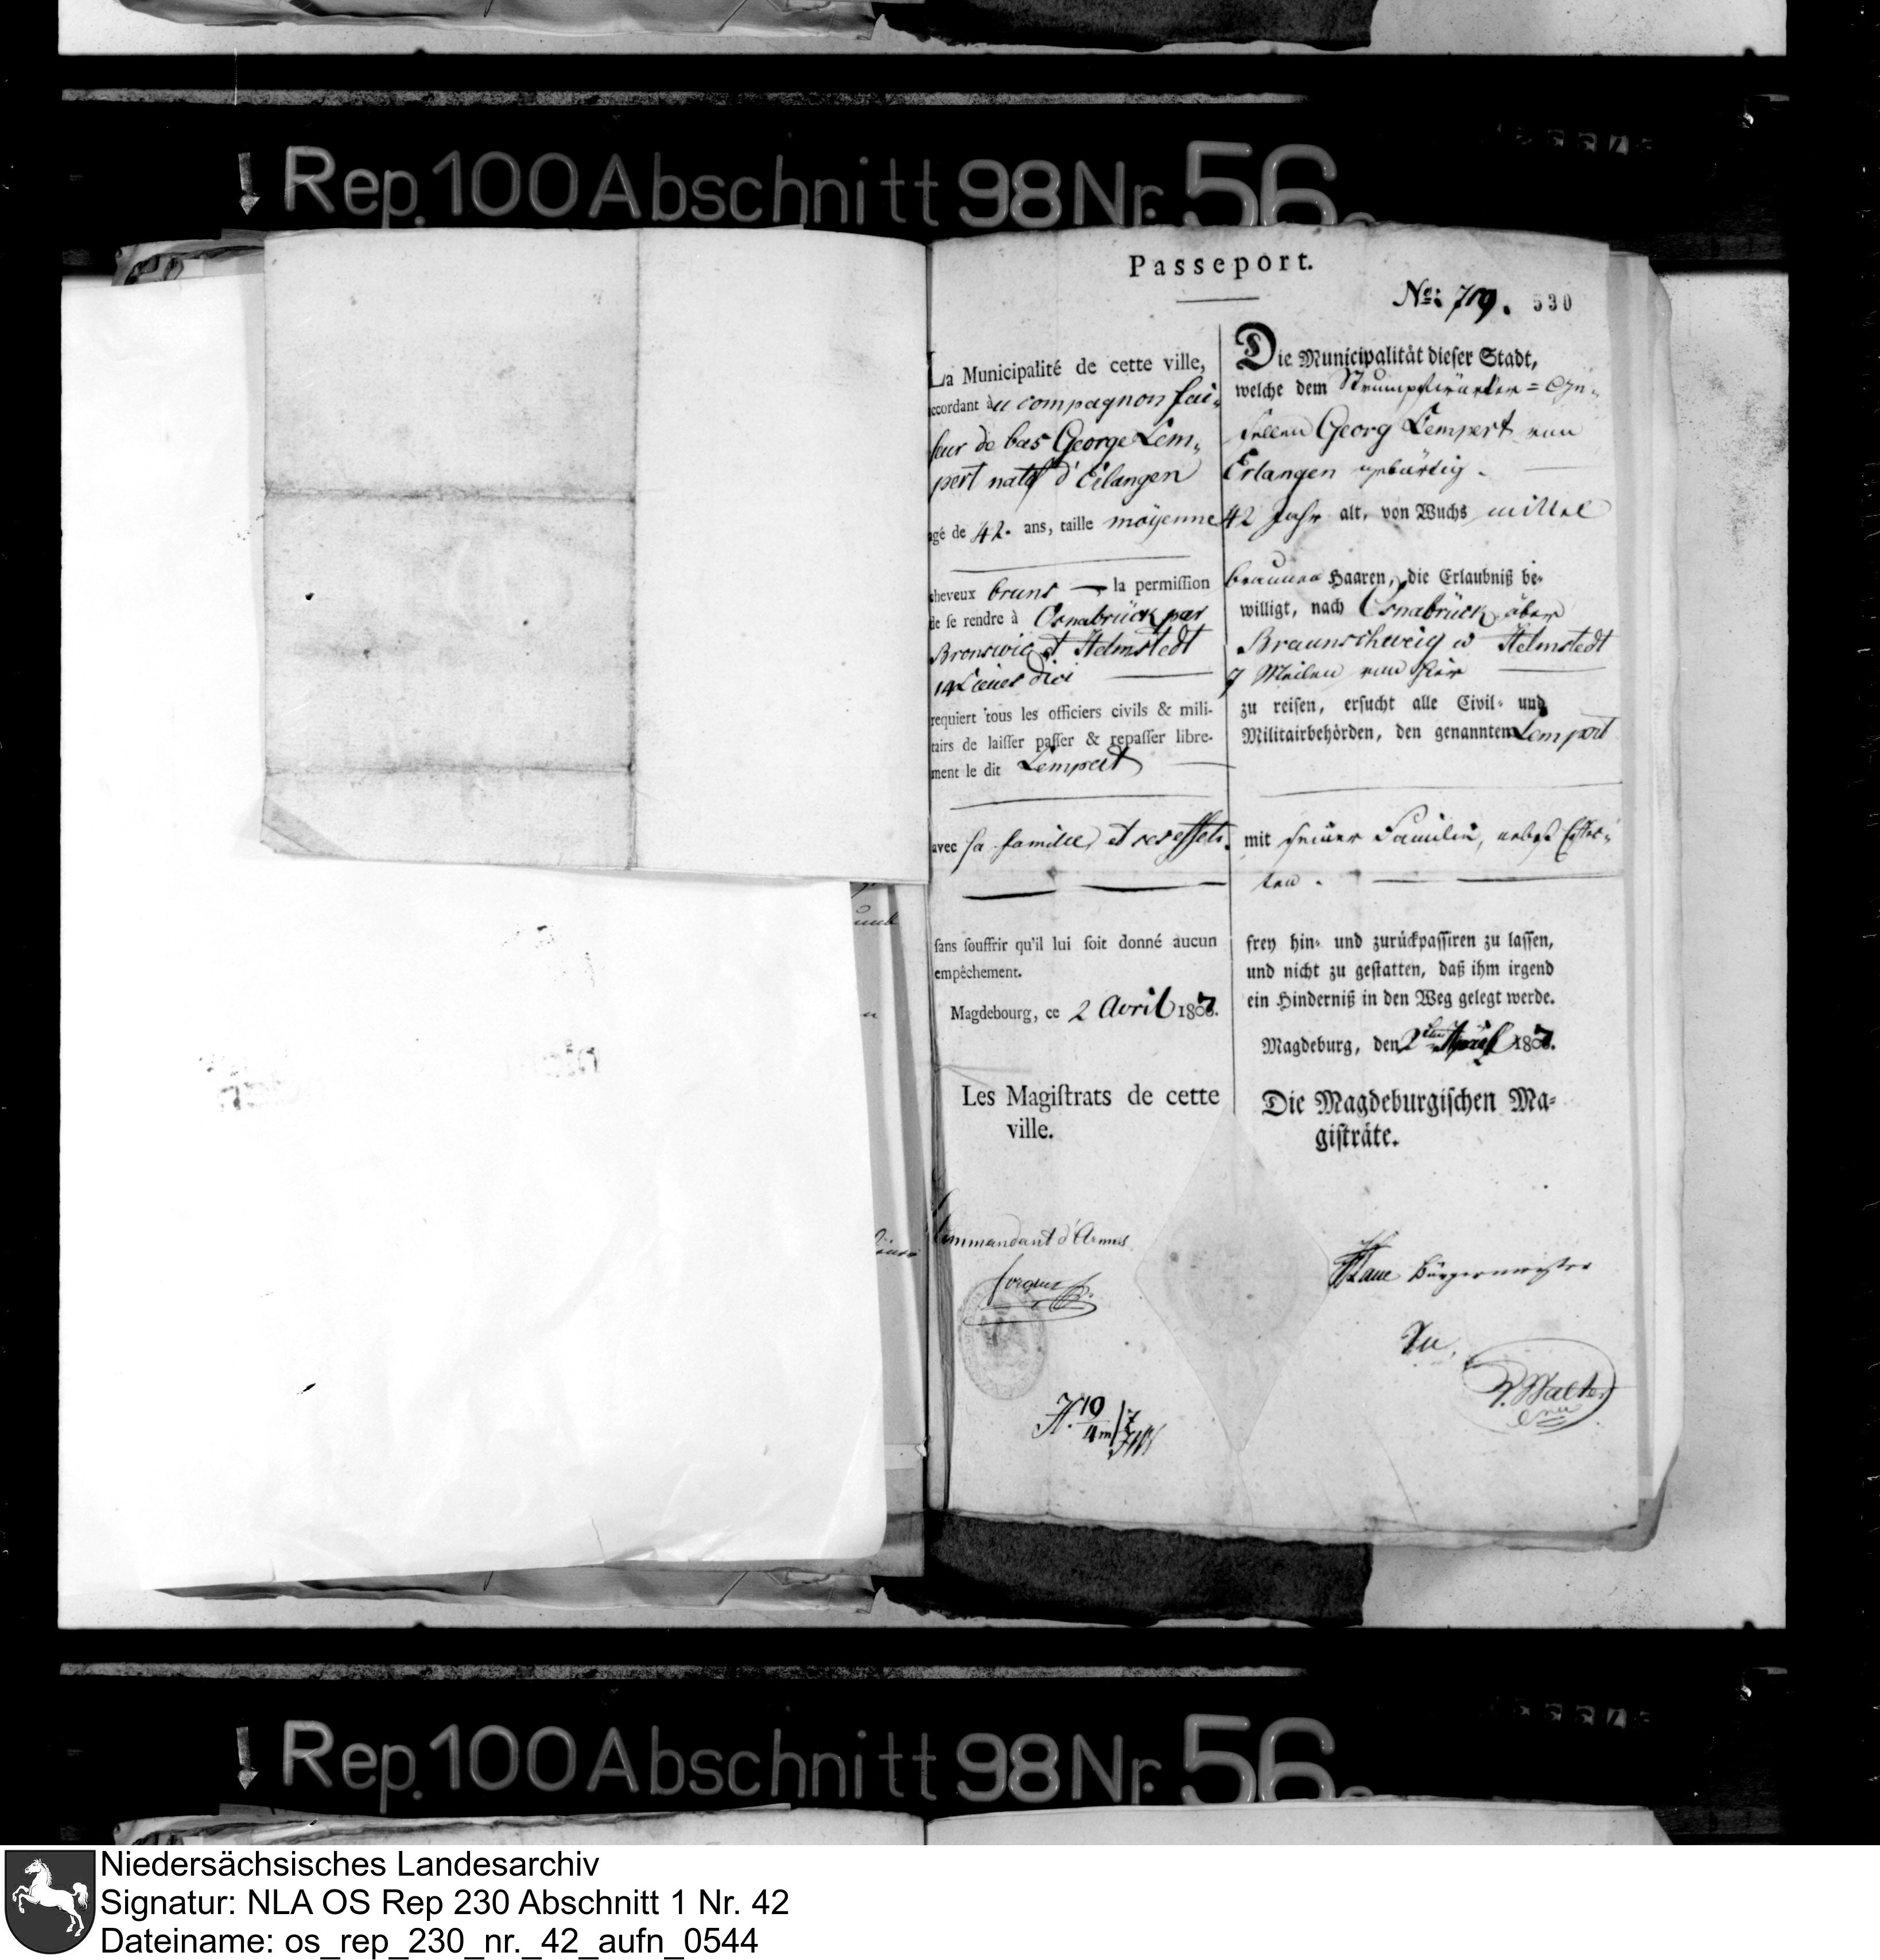 Rep. 100 Abschnitt 98 Nr. 56
Passeport.
No: 719. 530
La Municipalité de cette ville,
accordant à u compagnon fai-
seur de bas George Lem-
pert natif d'Erlangen
agé de 42. ans, taille moÿenne
cheveux bruns — la permiſſion
de ſe rendre à Osnabrück par
Bronswic et Helmstedt
14 Lieues d'ici
requiert tous les officiers civils & mili-
tairs de laiſſer paſſer & repaſſer libre-
ment le dit Lempert
avec ſa famille, et ses effets.
ſans ſouffrir qu'il lui ſoit donné aucun
empêchement.
Magdebourg, ce 2 Avril 1807.
Les Magiſtrats de cette
ville.
Commandant d'Armes
Die Municipalität dieſer Stadt,
welche dem Strumpfwürker=Ge-
sellen Georg Lempert von
Erlangen gebürtig.
42 Jahr alt, von Wuchs mittel
braunen Haaren, die Erlaubniß be-
willigt, nach Osnabrück über
Braunschweig u Helmstedt
7 Meilen von hier
zu reiſen, erſucht alle Civil- und
Militairbehörden, den genannten Lempert
mit seiner Familie, nebst Effec-
ten.
frey hin- und zurückpaſſiren zu laſſen,
und nicht zu geſtatten, daß ihm irgend
ein Hinderniß in den Weg gelegt werde.
Magdeburg, den 2ten April 1807.
Die Magdeburgiſchen Ma-
giſträte.
Bürgermeister
Walter
Rep. 100 Abschnitt 98 Nr. 56
Niedersächsisches Landesarchiv
Signatur: NLA OS Rep 230 Abschnitt 1 Nr. 42
Dateiname: os_rep_230_nr._42_aufn_0544